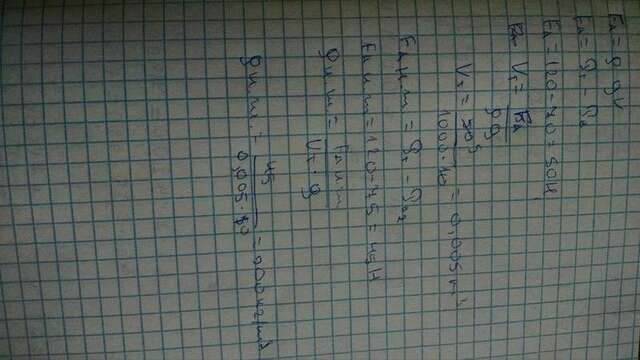 Fa = ρ g V
Fa = P₁ - P₂
Fa = 120-70 = 50H
V₁ = Fa / ρg
V₁ = 50 / 1000·10 = 0,005 m³
Fa н.т = P₁ - P₂
Fa н.т = 120-75 = 45H
ρ н.т = Fa н.т / V₁·g
ρ н.т. = 45 / 0,005·10 = 900 кг/м³